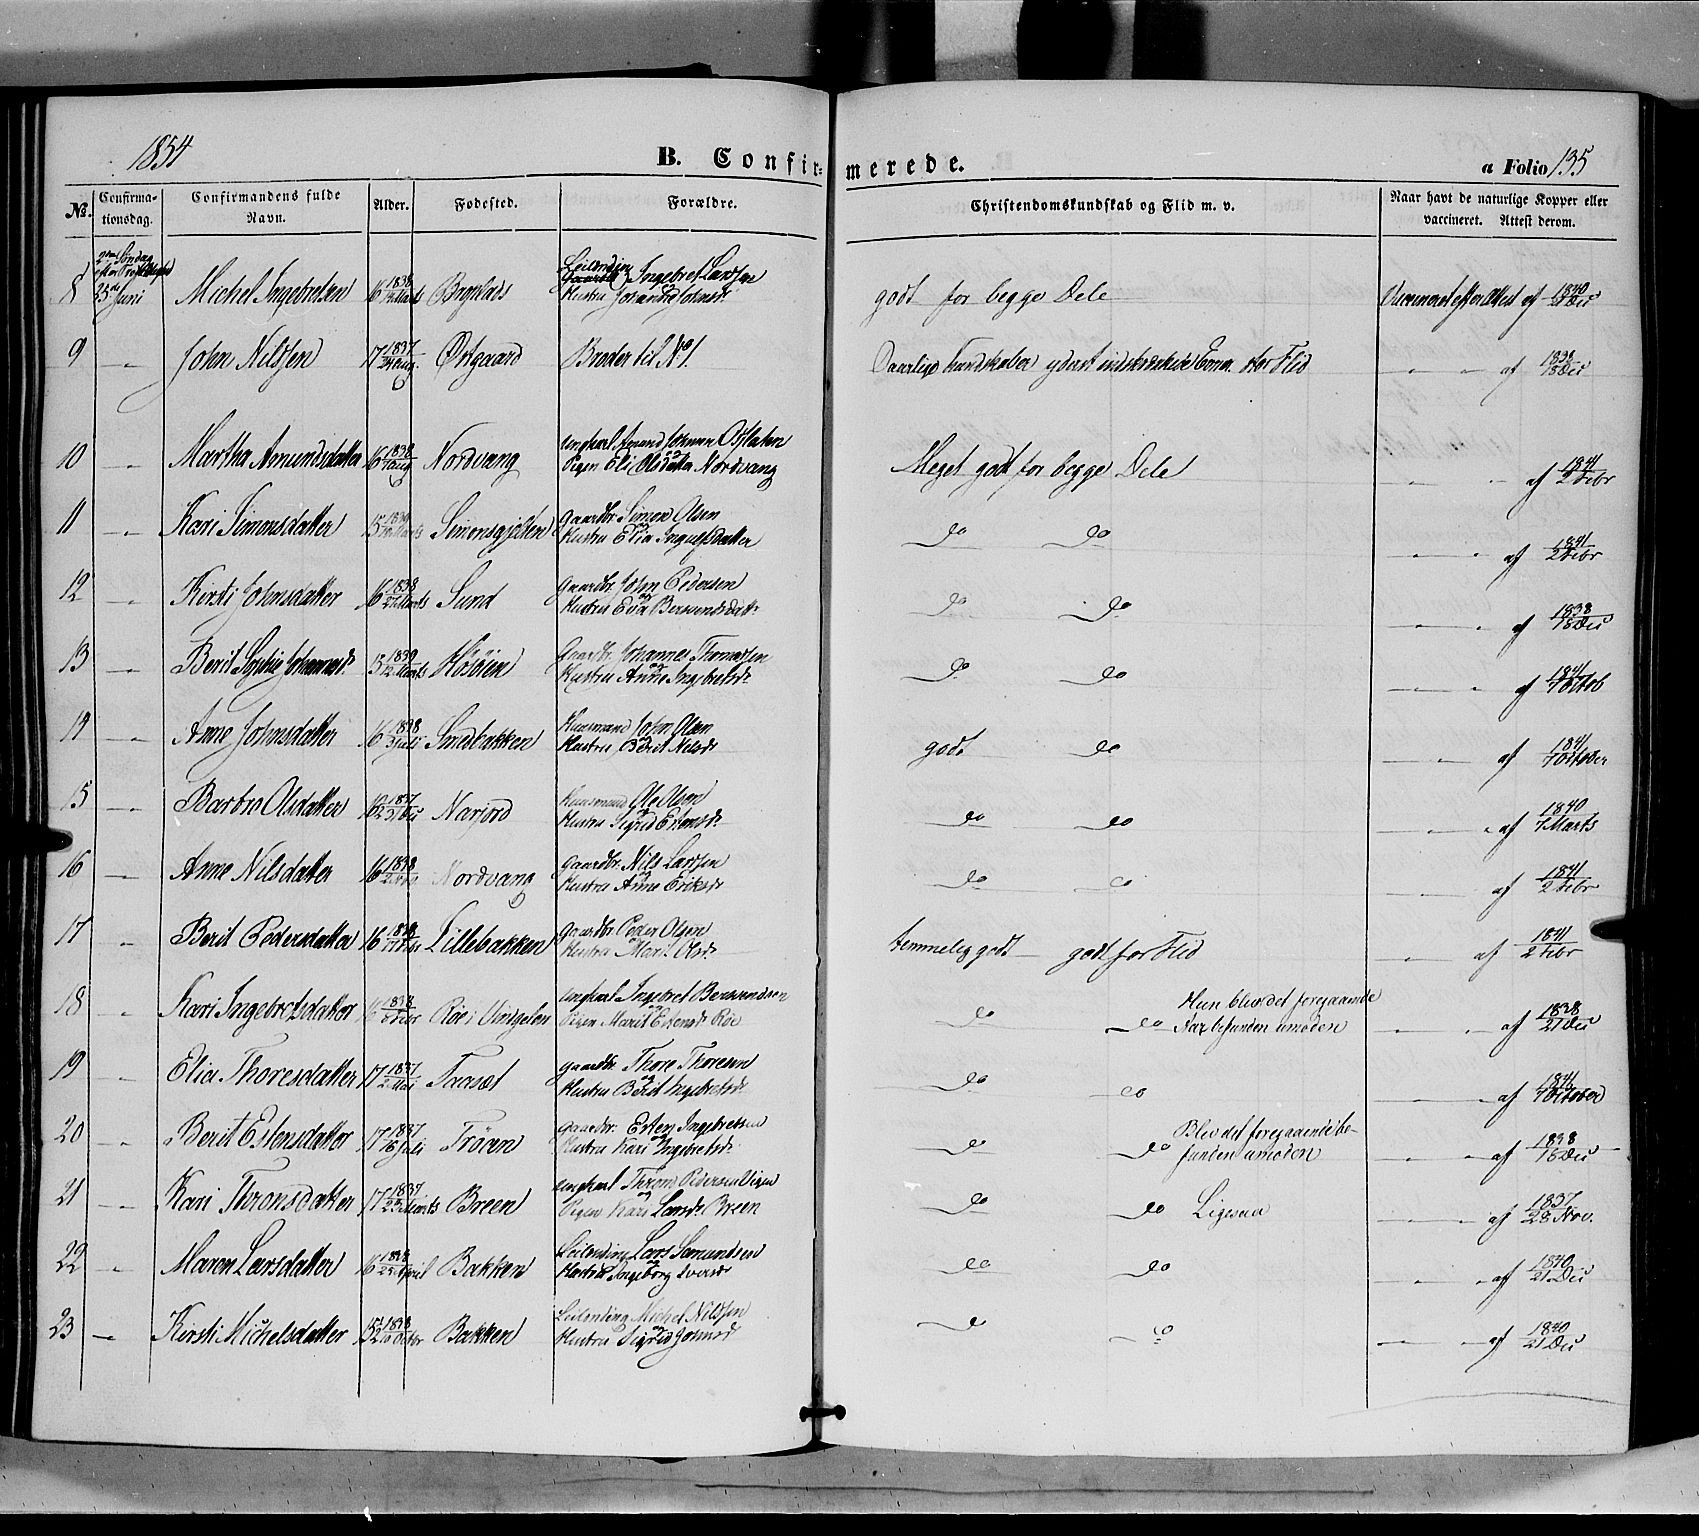 1854
B. Confirmerede.
a Folio 135
No. Confirmationsdag. Confirmandens fulde Navn. Alder. Fødested. Forældre. Christendomskundskab og Flid m. v. Naar havt de naturlige Kopper eller vaccineret. Attest derom.
2den Søndag
8 25de Juni Michel Ingebretsen 16 1838 Marts Bryplads Leilending Ingebret Larssen godt for begge Dele af 1840
9 " John Nilssen 17 1837 Aug. Østgaard Broder til No 1. Daarlige Kundskaber yderst indskrænkede Evner stor Flid " " af 1838 18 Dec
10 " Martha Amundsdatter 16 1838 Aug Nordvang Ungkarl Amund Johnsen
Pigen Eli Olsdatter Nordvang Meget godt for begge Dele " " af 1841 2 Febr
11 " Kari Simonsdatter 15 Marts Simonsgjelten Gaardbr. Simen Olsen
Hustru Elia Ingulfsdatter do do " " af 1841 2 Febr
12 " Kirsti Johnsdatter 16 1838 Marts Sund Gaardbr. John Pedersen
Hustru Eva Bersvendsdatt. do do " " af 1838 18 Dec
13 " Berit Sophie Johannesd. 15 1839 12 Marts Høsøien Gaardbr. Johannes Thomassen
Hustru Anne Ingebretsd. do do " " af 1841 7 Octob
14 " Anne Johnsdatter 16 1838 3 Juli Smedbakken Huusmand John Olsen
Hustru Berit Nilsd. godt do " " af 1841 7 October
15 " Barbro Olsdatter 16 1837 Narjord Huusmand Ole Olsen
Hustru Sigrid Estensd. do do " " af 1840 7 Marts
16 " Anne Nilsdatter 16 1838 Nordvang Gaardbr. Nils Larssen
Hustru Anne Eriksd. do do " af 1841 2 Febr
17 " Berit Pedersdatter 16 1838 Lillebakken Gaardbr. Peder Olsen
Hustru Marit Olsd. temmelig godt godt for Flid " af 1841 2 Febr
18 " Kari Ingebretsdatter 1838 Røe i Vingelen Ungkarl Ingebret Bersvendsen
Pigen Marit Estensd. Røe do do Hun blev det foregaaende
Aar befunden umoden " " af 1838 21 Dec
19 " Elia Thoresdatter 17 1837 2 Mai Taaset Gaardbr. Thore Thoresen
Hustru Berit Ingebretsd. do do af 7 October
20 " Berit Estensdatter 17 1837 16 Juli Trøan Gaardbr. Esten Ingebretsen
Hustru Kari Ingebretsd. do do Blev det foregaaende be-
funden umoden " " af 1838 18 Dec
21 " Kari Thronsdatter 17 1837 23 Marts Breen Ungkarl Thron Pedersen
Pigen Kari Larsd. Breen do do Ligesaa " " af 1837 28 Nov.
22 " Maren Larsdatter 16 1838 April Bakken Leilending Lars Samundsen
Hustru Ingeborg Iversd. do do " " af 1840 21 Dec
23 " Kirsti Michelsdatter 15 1838 Octbr Bakken Leilending Michel Nilssen
Hustru Sigrid do do " af 1840 21 Dec